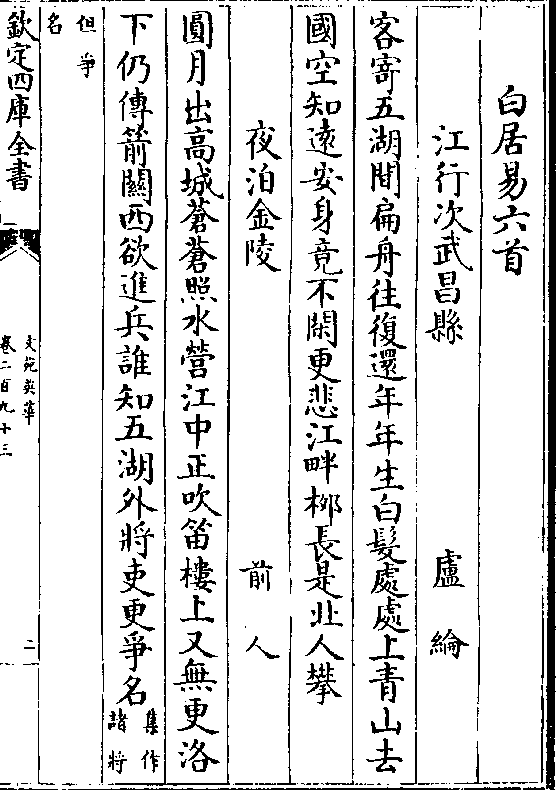 白居易六首
江行次武昌縣 盧綸
客寄五湖間扁舟往復還年年生白髮處處上青山去
國空知遠安身竟不閑更悲江畔栁長是北人攀
夜泊金陵 前人
圓月出高城蒼蒼照水營江中正吹笛樓上又無更洛
下仍傳箭關西欲進兵誰知五湖外將吏更爭名集作諸將
但爭名
欽定四庫全書
文苑英華
卷二百九十三
二